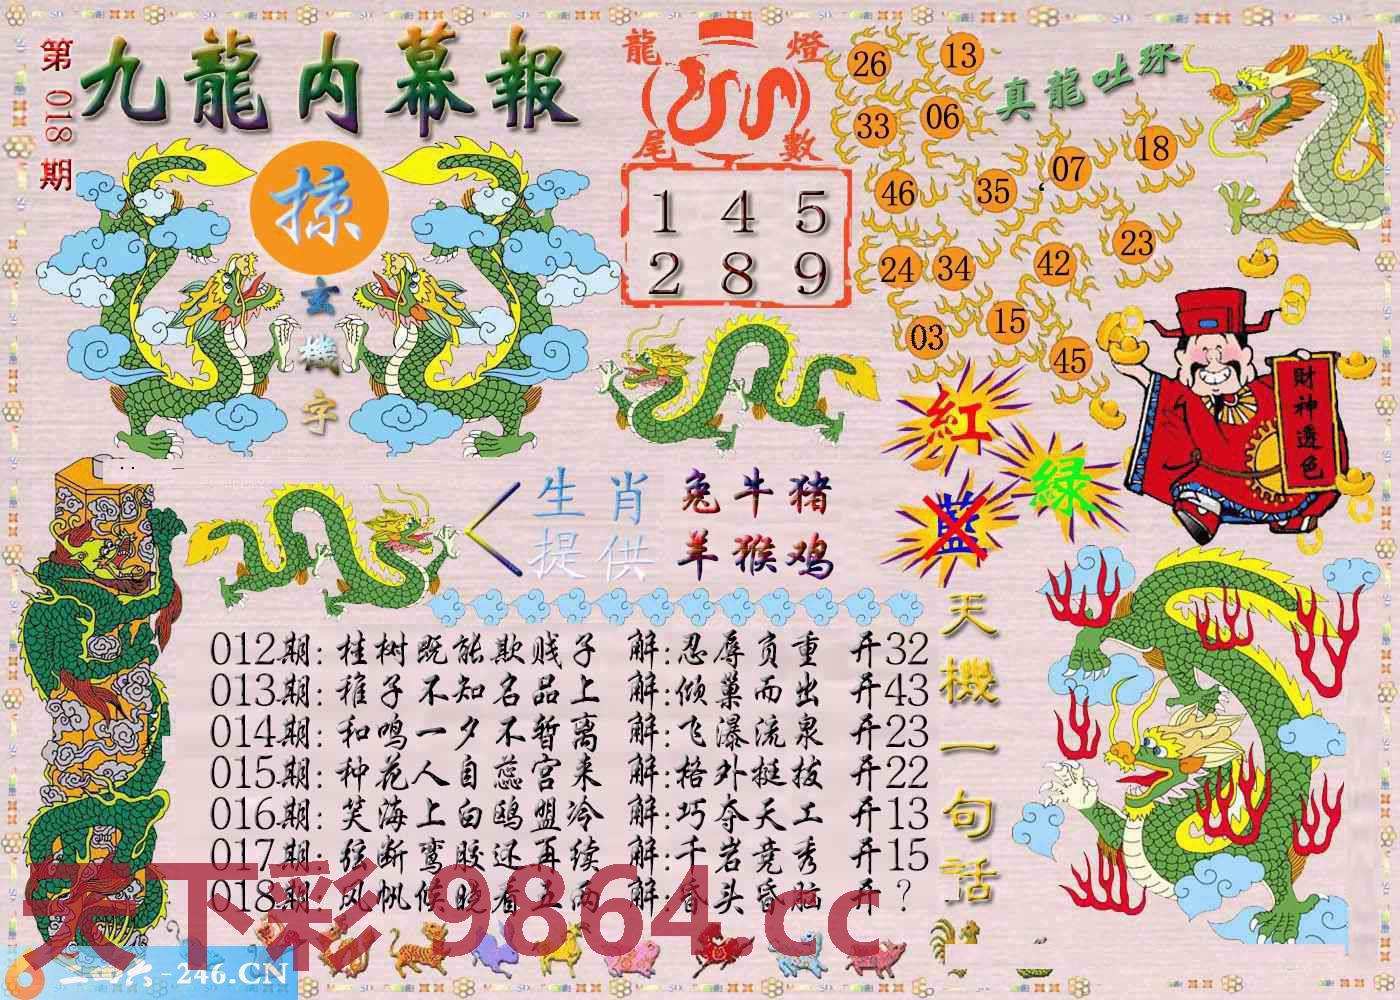 第018期
九龍内幕報
掠
玄機字
龍燈
尾數
1 4 5
2 8 9
真龍吐珠
26 13
33 06
46 35 07 18
24 34 42 23
03 15 45
財神透色
紅
绿
藍
生肖
提供
兔牛猪
羊猴鸡
天機一句話
012期:桂树既能欺贱子 解:忍辱负重 开32
013期:稚子不知名品上 解:倾巢而出 开43
014期:和鸣一夕不暂离 解:飞瀑流泉 开23
015期:种花人自蕊宫来 解:格外挺拔 开22
016期:笑海上白鸥盟冷 解:巧夺天工 开13
017期:弦断鸾胶还再续 解:千岩竞秀 开15
018期:风帆候晓看五两 解:昏头昏脑 开?
天下彩 9864.cc
二四六-246.CN